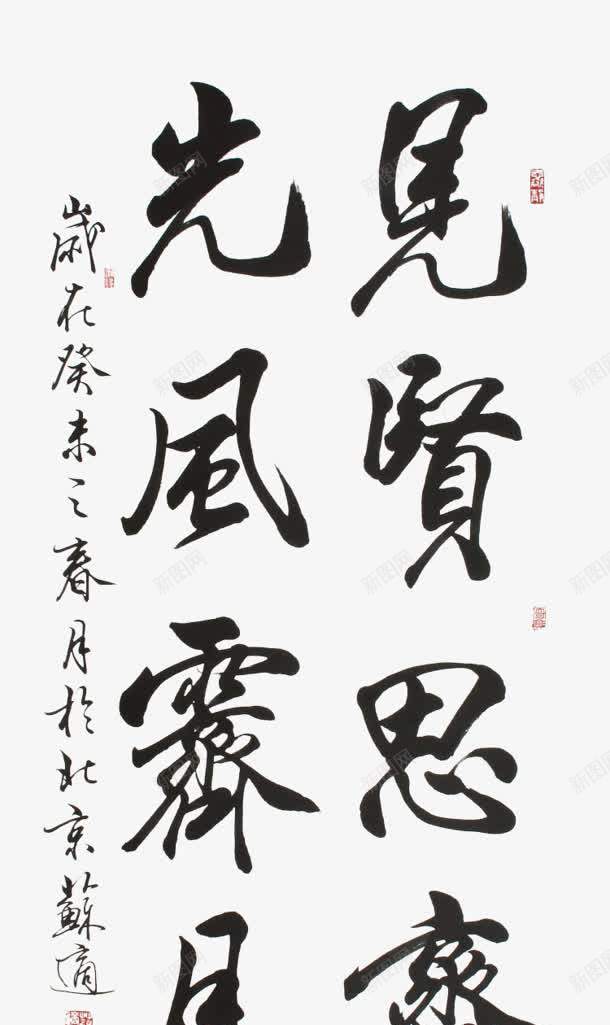 見賢思齊
光風霽月
歲在癸未之春月於北京蘇適
新图网